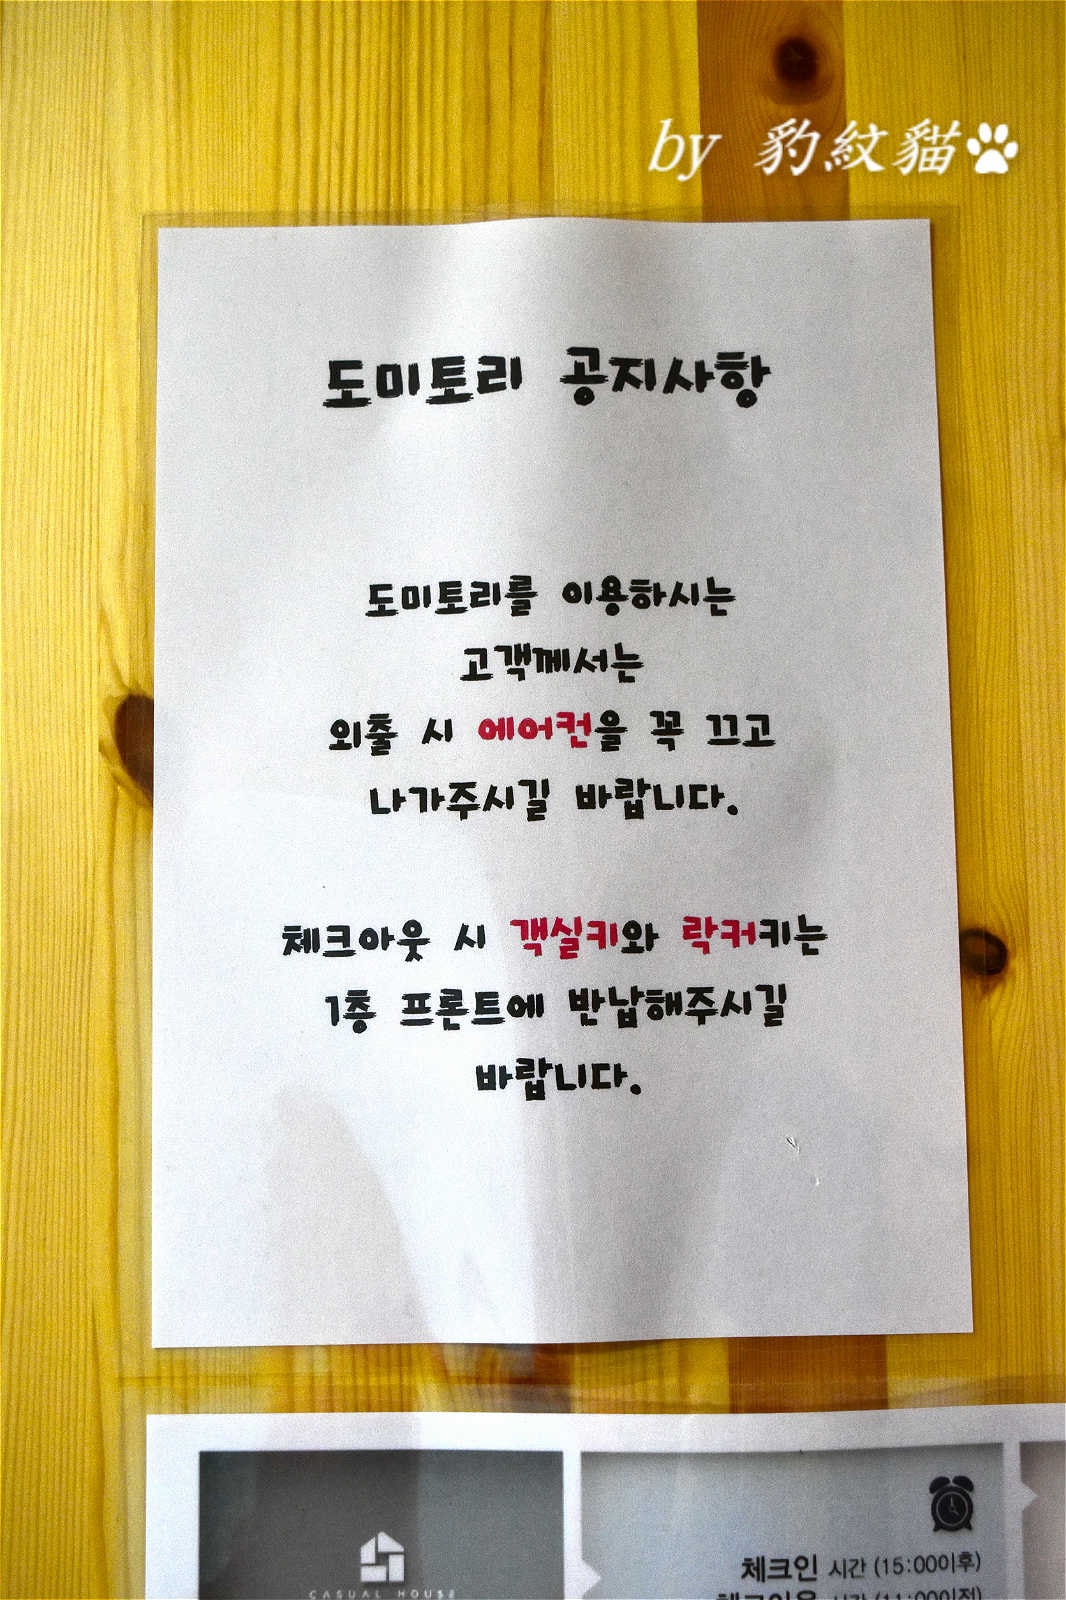 by 豹紋貓
도미토리 공지사항
도미토리를 이용하시는
고객께서는
외출 시 에어컨을 꼭 끄고
나가주시길 바랍니다.
체크아웃 시 객실키와 락커키는
1층 프론트에 반납해주시길
바랍니다.
CASUAL HOUSE
체크인 시간 (15:00이후)
체크아웃 시간 (11:00이전)